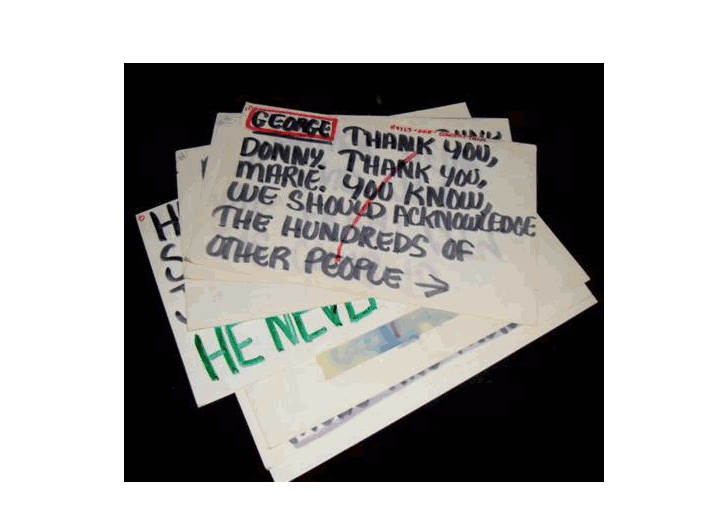 GEORGE THANK YOU,
DONNY. THANK YOU,
MARIE. YOU KNOW,
WE SHOULD ACKNOWLEDGE
THE HUNDREDS OF
OTHER PEOPLE →
HE NEVE